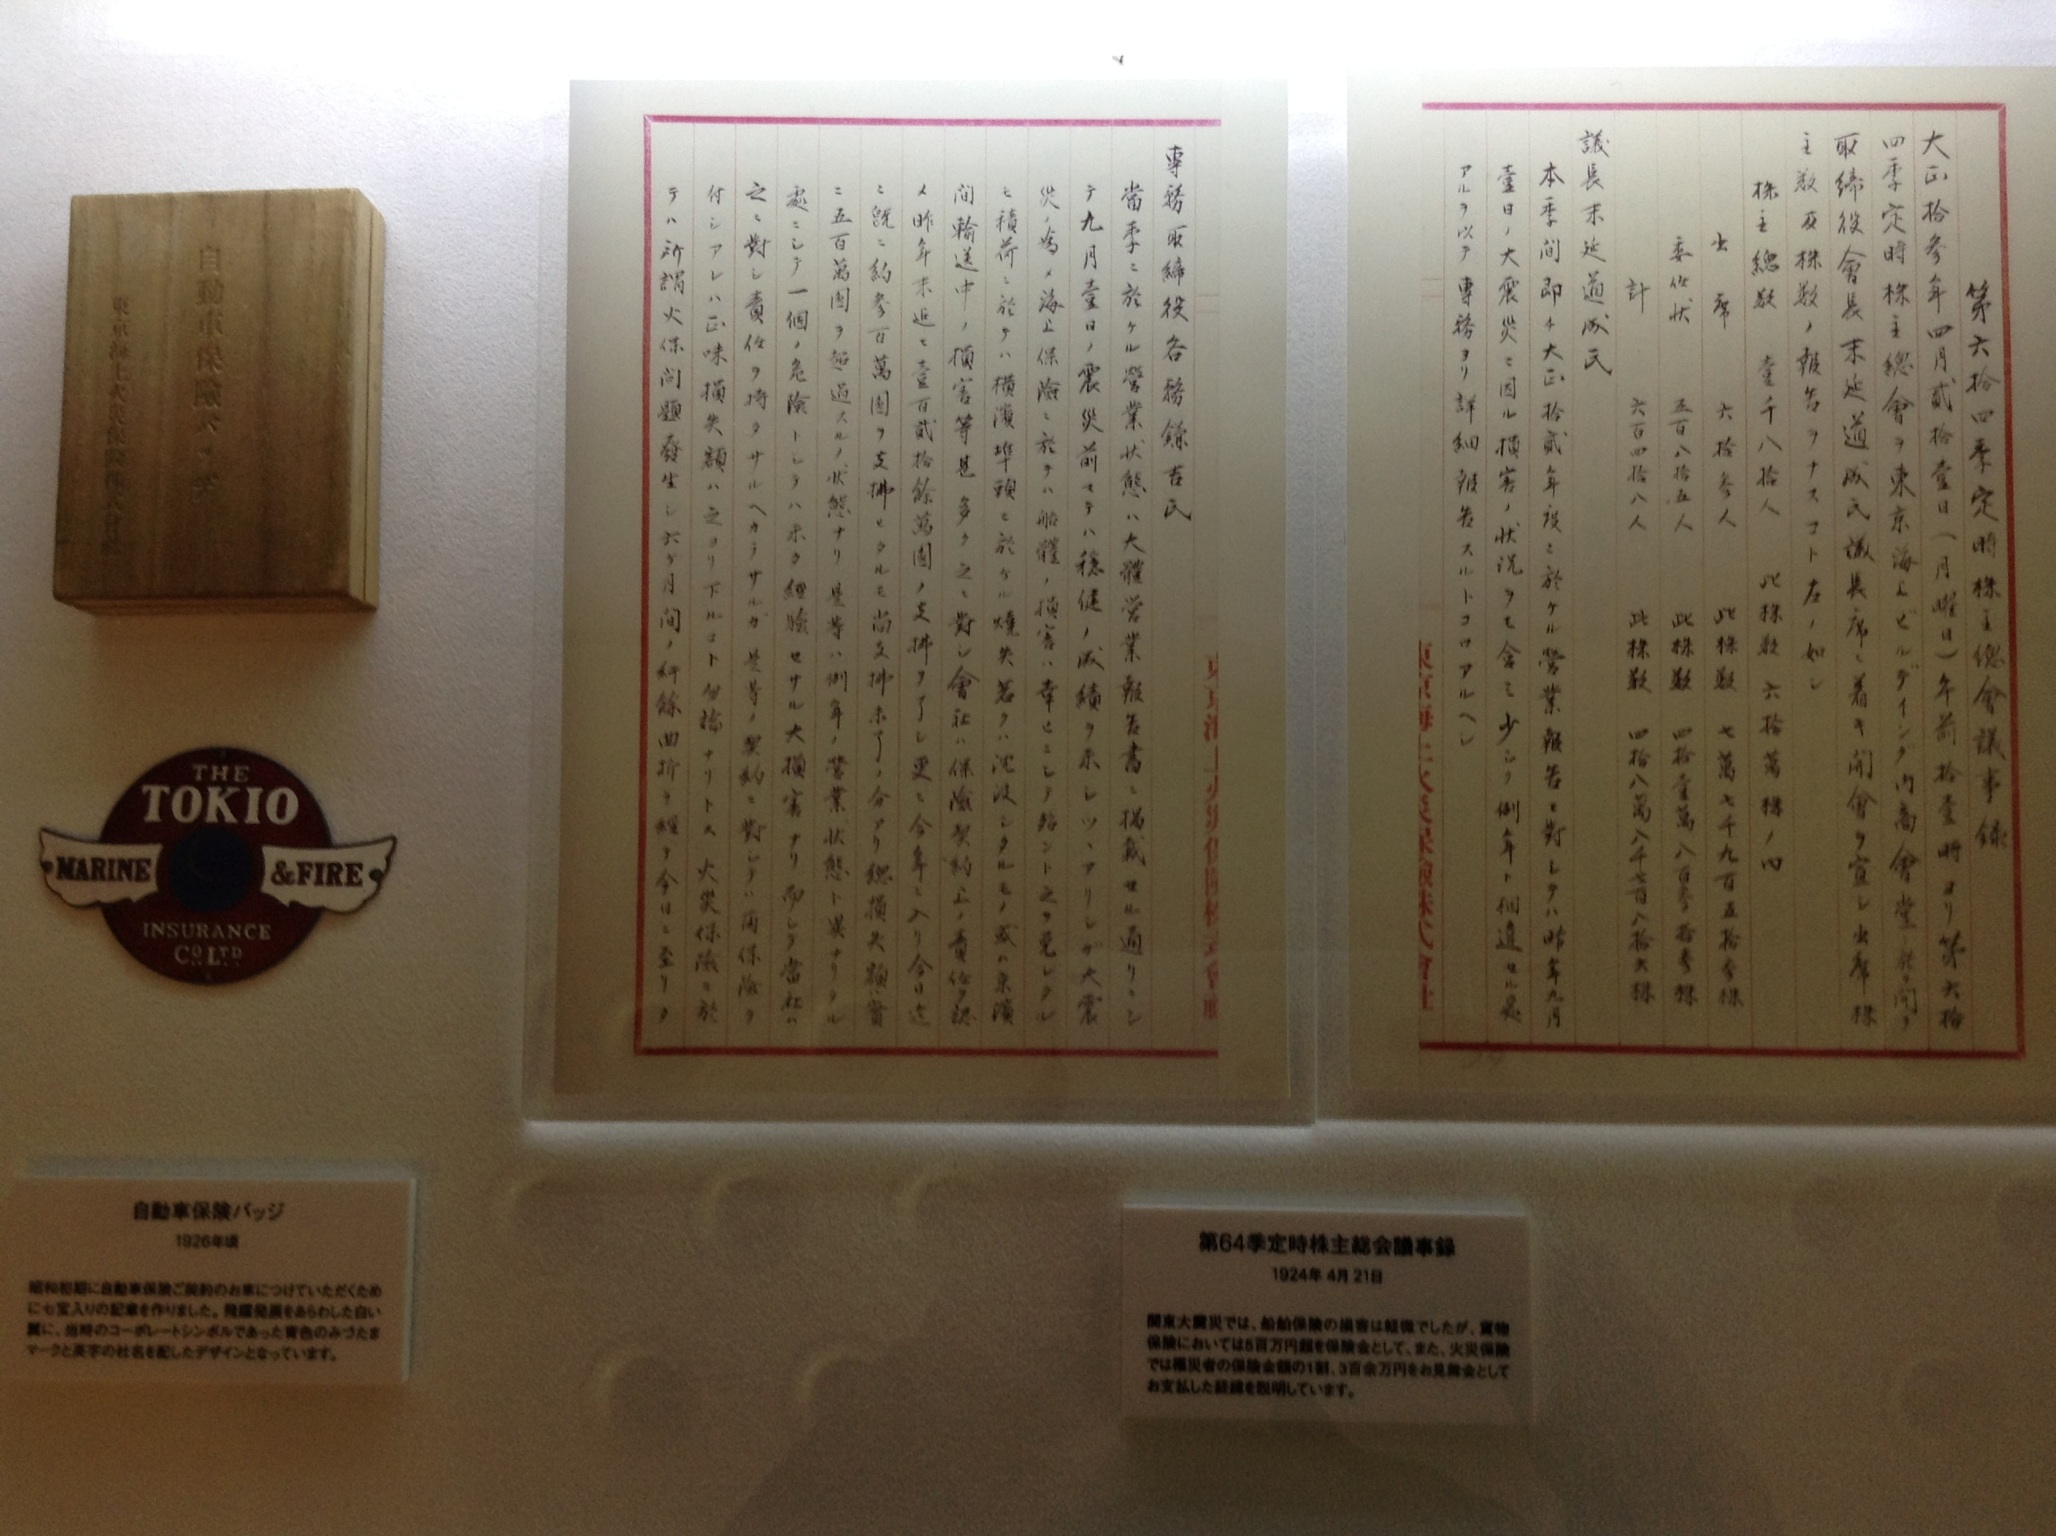 自動車保險バッヂ
東京海上火災保險株式會社
THE
TOKIO
MARINE &FIRE
INSURANCE
CO LTD
自動車保険バッジ
1926年頃
昭和初期に自動車保険ご契約のお車につけていただくため
に七宝入りの記章を作りました。飛躍発展をあらわした白い
翼に、当時のコーポレートシンボルであった青色のみづたま
マークと英字の社名を配したデザインとなっています。
第六拾四季定時株主總會議事録
大正拾参年四月貳拾壹日(月曜日)午前拾壹時ヨリ第六拾
四季定時株主總會ヲ東京海上ビルデイング内商會堂ニ於テ開ク
取締役會長末延道成氏議長席ニ着キ開會ヲ宣シ出席株
主数及株数ノ報告ヲナスコト左ノ如シ
株主總数 壹千八拾人 此株数 六拾萬株ノ内
出席 六拾参人 此株数 七萬七千九百五拾参株
委任状 五百八拾五人 此株数 四拾壹萬八百参拾参株
計 六百四拾八人 此株数 四拾八萬八千七百八拾六株
議長末延道成氏
本季間即チ大正拾貳年度ニ於ケル營業報告ニ對シテハ昨年九月
壹日ノ大震災ニ因ル損害ノ状況ヲモ含ミ少シク例年ト相違セル処
アルヲ以テ専務ヨリ詳細報告スルトコロアルヘシ
東京海上火災保險株式會社
専務取締役各務鎌吉氏
當季ニ於ケル營業状態ハ大體営業報告書ニ掲載セル通リニシ
テ九月壹日ノ震災前マテハ穏健ノ成績ヲ示シツヽアリシガ大震
災ノ為メ海上保險ニ於テハ船體ノ損害ハ幸ヒニシテ殆ント之ヲ免レタル
モ積荷ニ於テハ横濱埠頭ニ於ケル燒失若クハ沈没シタルモノ或ハ京濱
間輸送中ノ損害等甚多ク之ニ對シ會社ハ保險契約上ノ責任ヲ認
メ昨年末迄ニ壹百貳拾餘萬圓ノ支拂ヲ了シ更ニ今年ニ入リ今日迄
ニ既ニ約参百萬圓ヲ支拂ヒタルモ尚支拂未了ノ分アリ總損失額ハ實
ニ五百萬圓ヲ超過スルノ状態ナリ是等ハ例年ノ營業状態ト異ナリタル
處ニシテ一個ノ危險トシテハ未タ經驗セサル大損害ナリ而シテ當社ハ
之ニ對シ責任ヲ持タサルヘカラサルガ是等ノ契約ニ對シテハ再保險ヲ
付シアレハ正味損失額ハ之ヨリ下ルコト勿論ナリトス火災保險ニ於
テハ所謂火保問題發生シ六ケ月間ノ紆餘曲折ヲ經テ今日ニ至リタ
第64季定時株主総会議事録
1924年 4月 21日
関東大震災では、船舶保険の損害は軽微でしたが、貨物
保険においては5百万円超を保険金として、また、火災保険
では罹災者の保険金額の1割、3百余万円をお見舞金として
お支払した経緯を説明しています。